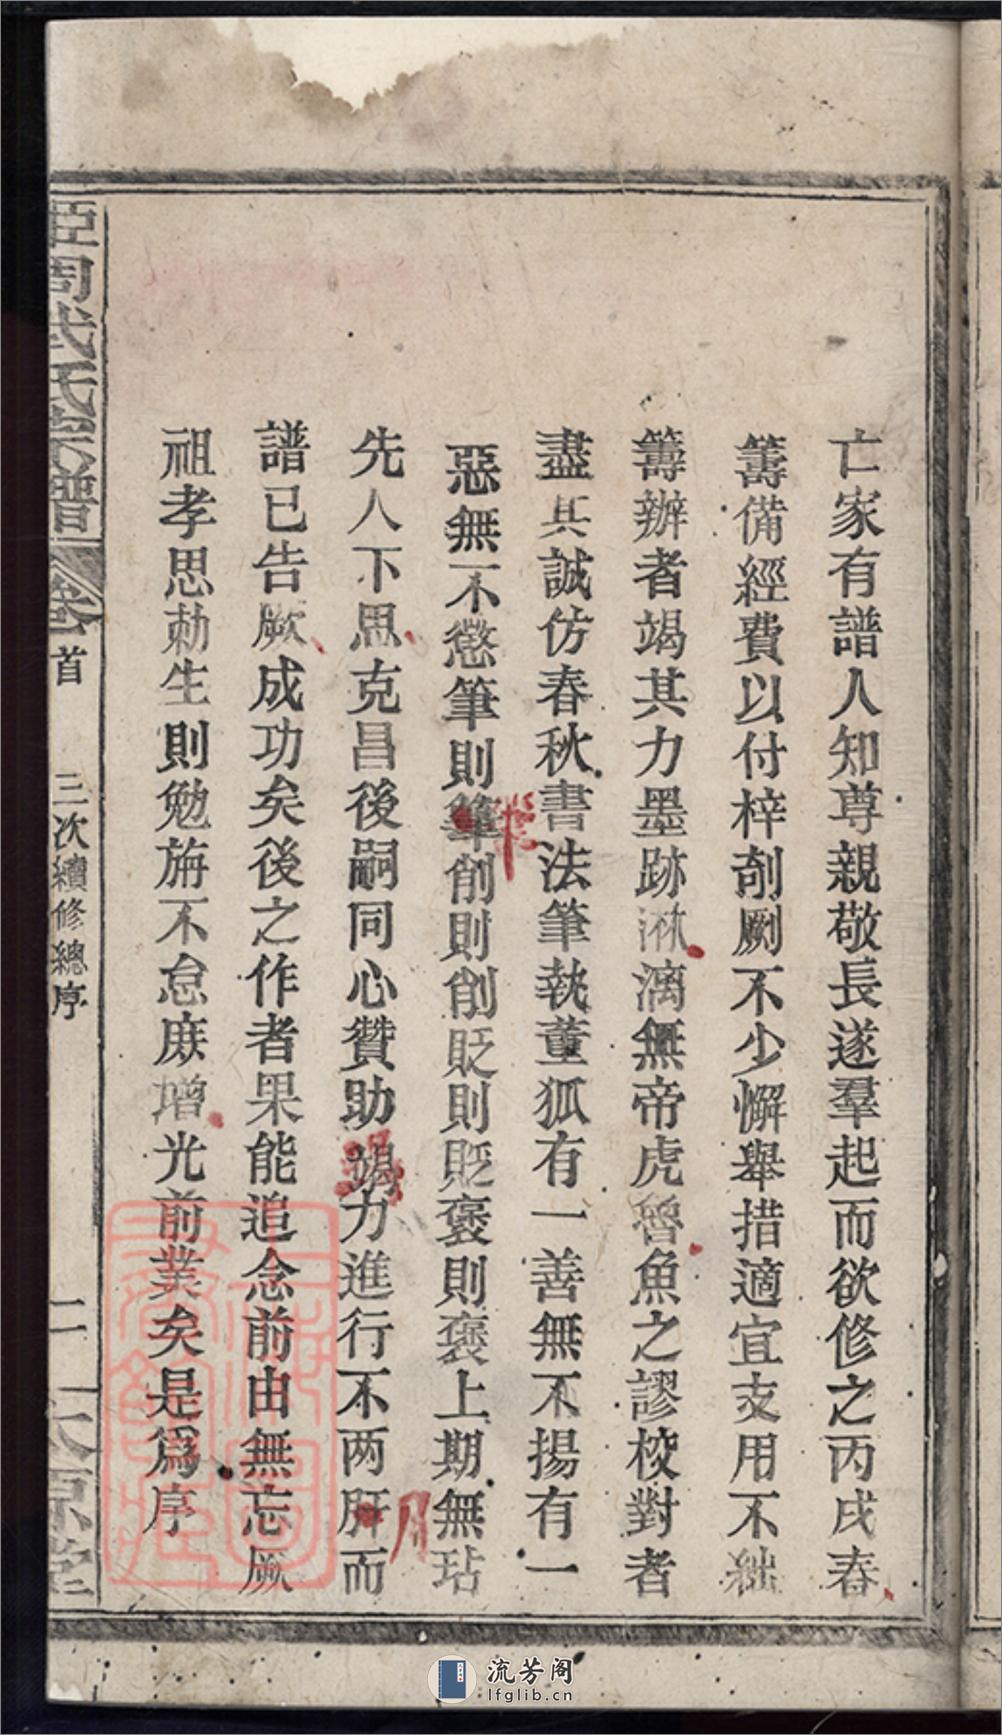 亡家有譜人知尊親敬長遂羣起而欲修之丙戌春
籌備經費以付梓剞劂不少懈舉措適宜支用不絀
籌辦者竭其力墨跡淋漓無帝虎魯魚之謬校對者
盡其誠仿春秋書法筆執董狐有一善無不揚有一
惡無不懲筆則筆削則削貶則貶褒則褒上期無玷
先人下思克昌後嗣同心贊助竭力進行不两肝而
月
譜已告厥成功矣後之作者果能追念前由無忘厥
祖孝思勑生則勉旃不怠庶增光前業矣是爲序
周武氏宗譜
卷首
三次續修總序
二
太原堂
流芳阁
lfglib.cn